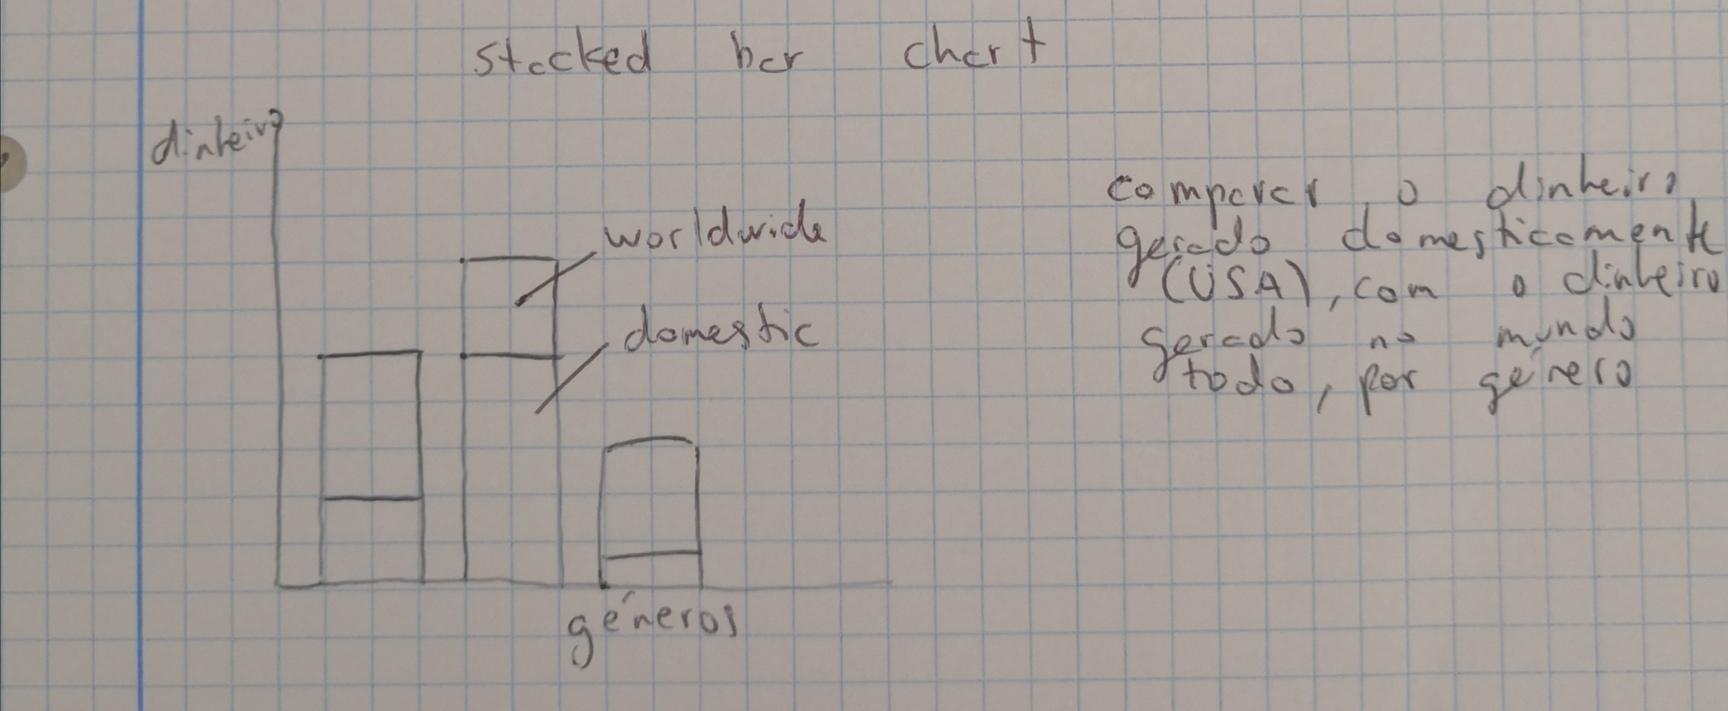 stacked bar chart
dinheiro
worldwide
domestic
géneros
comparar o dinheiro
gerado domesticamente
(USA), com o dinheiro
gerado no mundo
todo, por género